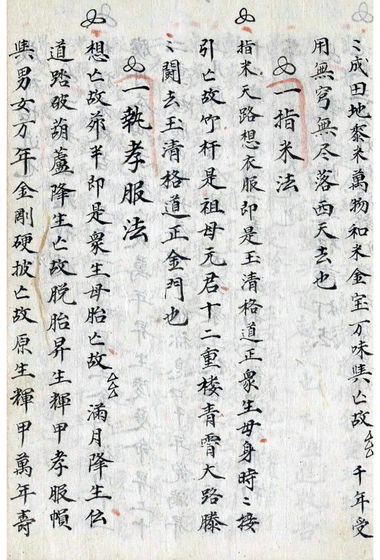 〻成田地黎米萬物和米金宝万味與亡故厶厶千年受
用無窮無尽落西天去也
一指米法
指米天路想衣服即是玉清格道正衆生母身時〻接
引亡故竹杆是祖母元君十二重楼青霄大路滕
〻闘去玉清格道正金門也
一執孝服法
想亡故茆半即是衆生母胎亡故厶厶滿月降生伝
道踏破葫蘆降生亡故脱胎昇生輝甲孝服幀
與男女万年金剛硬披亡故原生輝甲萬年壽